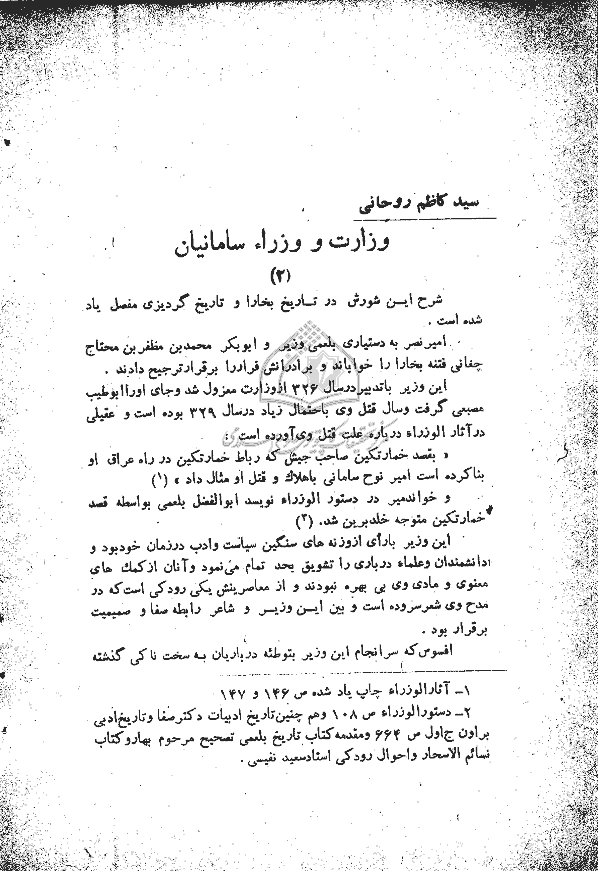 سید کاظم روحانی
وزارت و وزراء سامانیان
(۲)
شرح ایـن شورش در تـاریخ بخارا و تاریخ گردیزی مفصل یاد
شده است .
امیرنصر به دستیاری بلعمی وزیر و ابوبکر محمدبن مظفربن محتاج
چغانی فتنه بخارا را خواباند و برادرانش فراررا برقرارترجیح دادند .
این وزیر باتدبیردرسال ۳۲۶ ازوزارت معزول شد وجای اوراابوطیب
مصعبی گرفت وسال قتل وی باحتمال زیاد درسال ۳۲۹ بوده است و عقیلی
درآثار الوزراء درباره علت قتل وی‌آورده است :
« بقصد خمارتکین صاحب جیش که رباط خمارتکین در راه عراق او
بناکرده است امیر نوح سامانی باهلاك و قتل او مثال داد » (۱)
و خواندمیر در دستور الوزراء نویسد ابوالفضل بلعمی بواسطه قصد
خمارتکین متوجه خلدبرین شد. (۲)
این وزیر بارأی ازوزنه های سنگین سیاست وادب درزمان خودبود و
دانشمندان وعلماء درباری را تشویق بحد تمام می‌نمود وآنان ازکمك های
معنوی و مادی وی بی بهره نبودند و از معاصرینش یکی رودکی است‌که در
مدح وی شعرسروده است و بین ایـن وزیـر و شاعر رابطه صفا و صمیمیت
برقرار بود .
افسوس‌که سرانجام این وزیر بتوطئه درباریان بـه سخت ناکی گذشته
۱ـ آثارالوزراء چاپ یاد شده ص ۱۴۶ و ۱۴۷
۲ـ دستورالوزراء ص ۱۰۸ وهم چنین‌تاریخ ادبیات دکترصفا وتاریخ‌ادبی
براون ج‌اول ص ۶۶۴ ومقدمه‌کتاب تاریخ بلعمی تصحیح مرحوم بهاروکتاب
نسائم الاسحار واحوال رودکی استادسعید نفیسی .